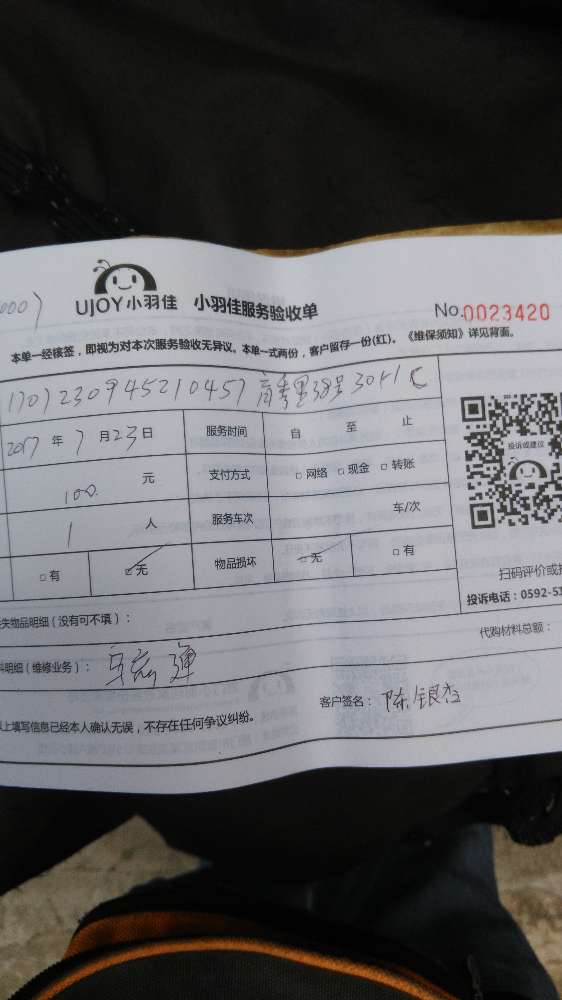 000)
UJOY小羽佳 小羽佳服务验收单
No.0023420
本单一经核签，即视为对本次服务验收无异议。本单一式两份，客户留存一份(红)。《维保须知》详见背面。
1707230945210457 38号301
2017年7月23日 服务时间 自 至 止
100 元 支付方式 □网络 □现金 □转账
1 人 服务车次 车/次
□有 □无 物品损坏 □无 □有
投诉或建议
扫码评价或
投诉电话：0592-53
失物品明细（没有可不填）：
代购材料总额：
明细（维修业务）：
上填写信息已经本人确认无误，不存在任何争议纠纷。
客户签名：陈银杰